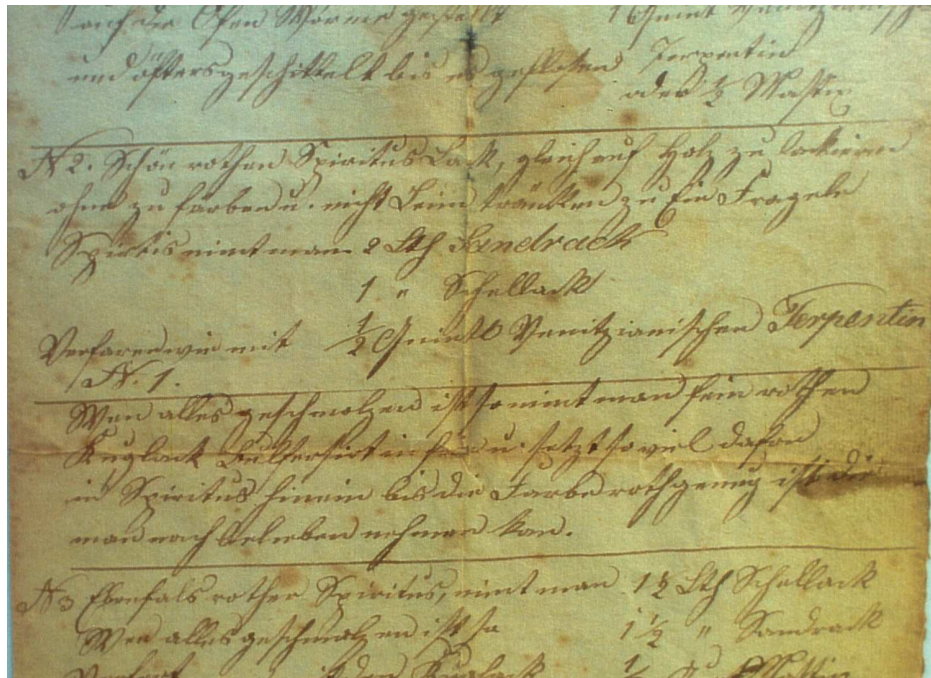 auf der Ofen Wärme gestelt 1 Quint Venitzianisch
und öfters geschittelt bis es geflosen Terpentin
oder ½ Mastix
N 2. Schön rothen Spiritus Lack, gleich auf Holz zu lackieren
ohne zu färben u. nicht Leim tränken zu Ein Fragele
Spiritis nimt man 2 Lth Sandrack
1 " Schellack
Verfaren wie mit ½ Quintl Venitzianischen Terpentin
N. 1.
Wen alles geschmolzen ist so nimt man fein rothen
Kuglack Bulfersirt in fein u. setzt so viel dafon
in Spiritus hinein bis die Farbe roth genug ist die
man nach Belieben nehmen kan.
N 3 Ebenfals rother Spiritus, nimt man 1 ½ Lth Schellack
Wen alles geschmolzen ist so 1 ½ " Sandrack
Verfert mit den Kuglack ½